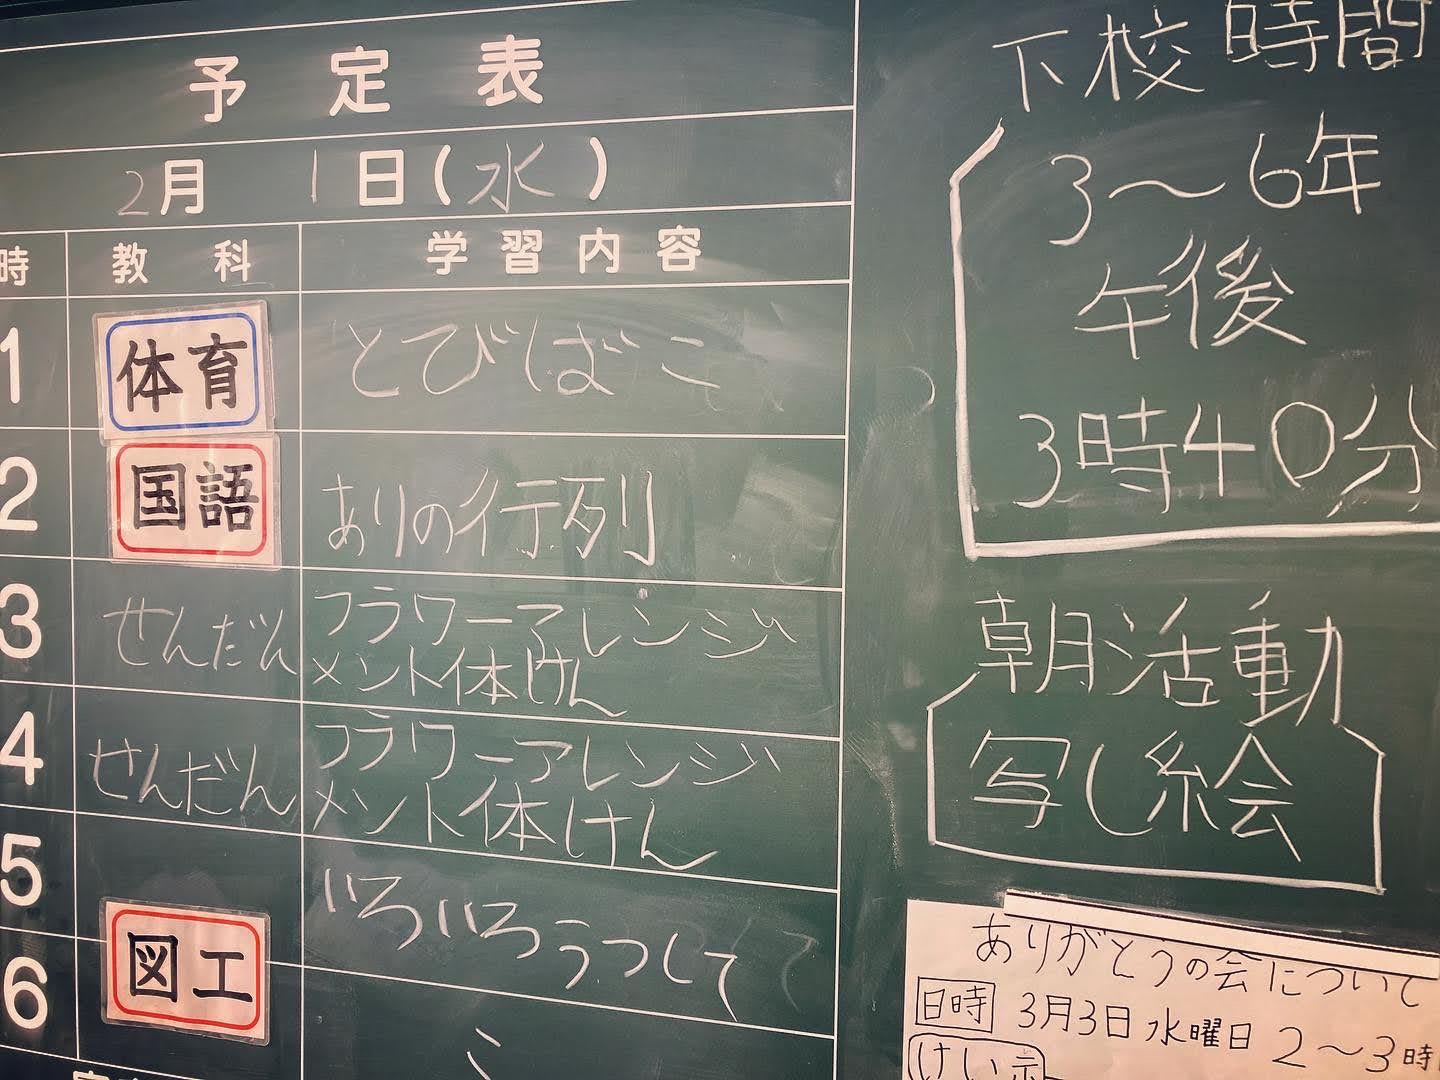 予定表
2月1日(水)
時 教科 学習内容
1 体育 とびばこ
2 国語 ありの行列
3 せんだん フラワーアレンジ
メント体けん
4 せんだん フラワーアレンジ
メント体けん
5
6 図工 いろいろうつして
下校時間
3〜6年
午後
3時40分
朝活動
写し絵
ありがとうの会について
日時 3月3日水曜日2〜3時
けい示